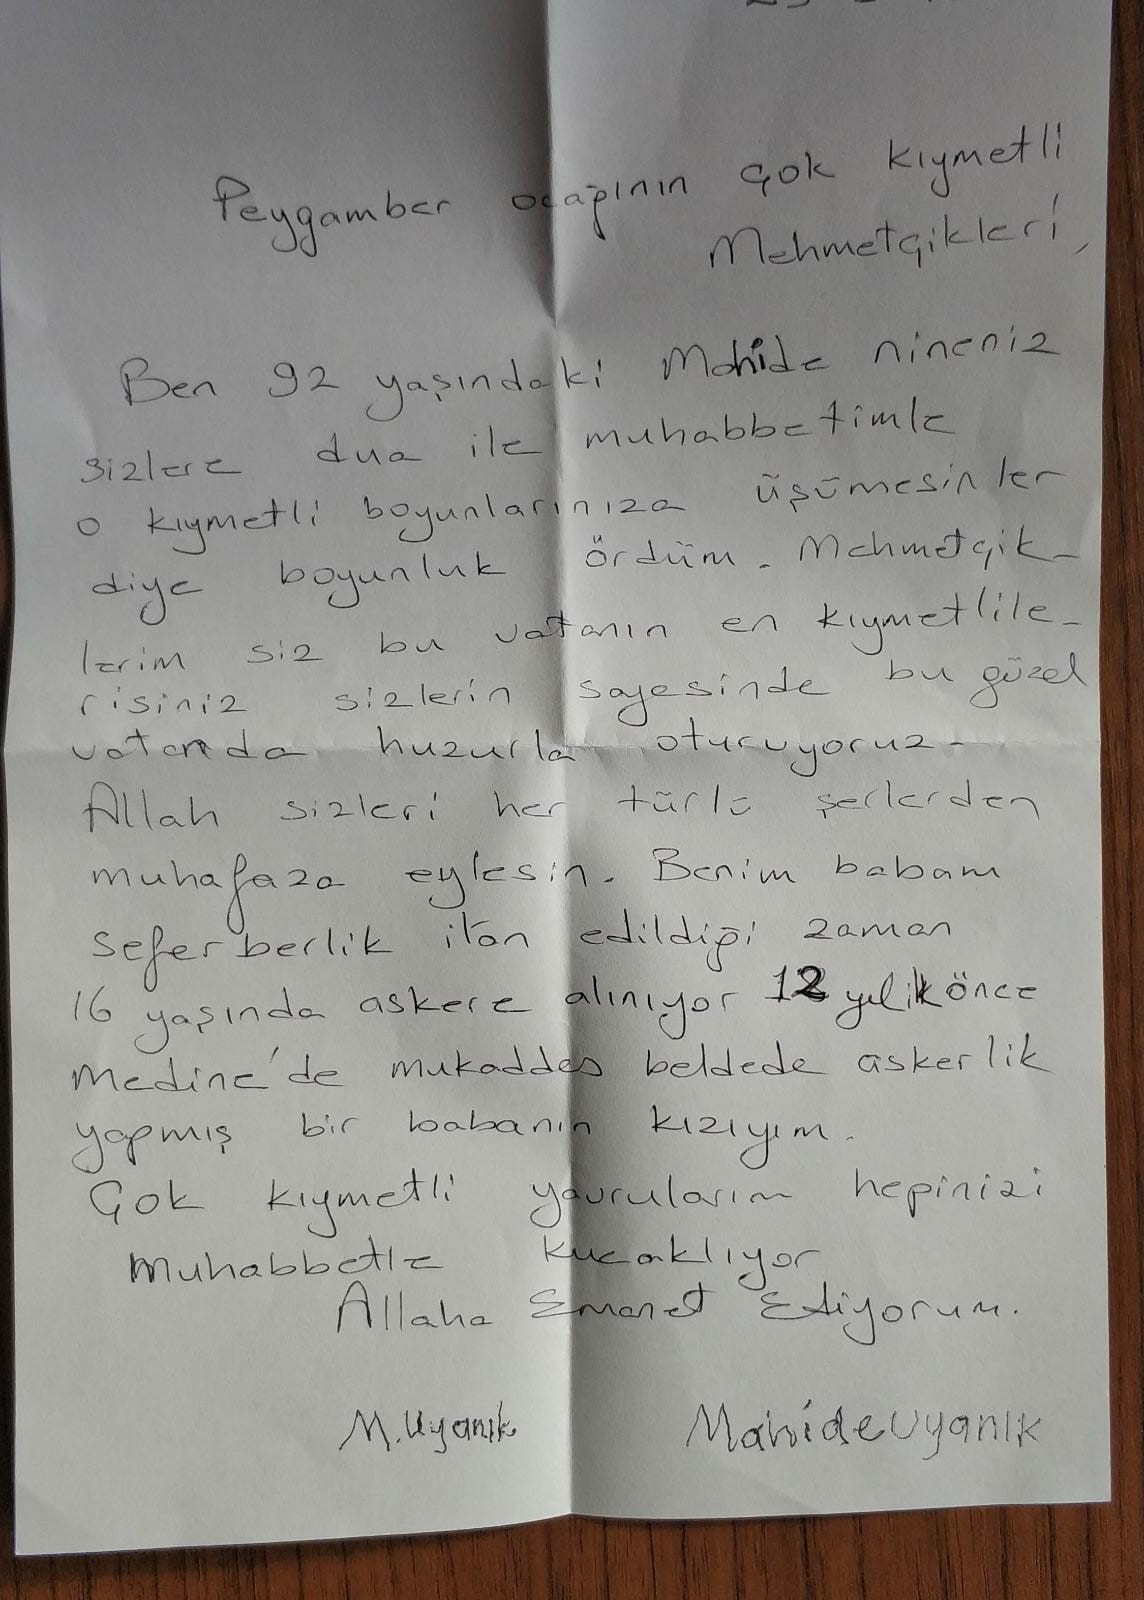 Peygamber ocağının çok kıymetli
Mehmetçikleri,
Ben 92 yaşındaki Mahide nineniz
sizlere dua ile muhabbetimle
o kıymetli boyunlarınıza üşümesinler
diye boyunluk ördüm. Mehmetçik-
lerim siz bu vatanın en kıymetlile-
risiniz sizlerin sayesinde bu güzel
vatanda huzurla oturuyoruz.
Allah sizleri her türlü şerlerden
muhafaza eylesin. Benim babam
seferberlik ilan edildiği zaman
16 yaşında askere alınıyor 12 yıllık önce
Medine'de mukaddes beldede askerlik
yapmış bir babanın kızıyım.
Çok kıymetli yavrularım hepinizi
Muhabbetle kucaklıyor
Allaha Emanet Ediyorum.
M.Uyanık Mahide Uyanık